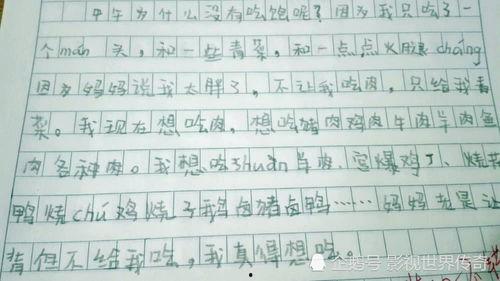 中午为什么没有吃饱呢?因为我只吃了一
个mán头,和一些青菜,和一点点火腿cháng
因为妈妈说我太胖了,不让我吃肉,只给我青
菜。我现在想吃肉,想吃猪肉鸡肉牛肉羊肉鱼
肉各种肉。我想吃Shuàn羊肉,宫爆鸡丁、烧花
鸭烧chú鸡烧子鹅卤猪卤鸭……妈妈就是让
背但不给我吃,我真得想吃。
企鹅号 影视世界传奇